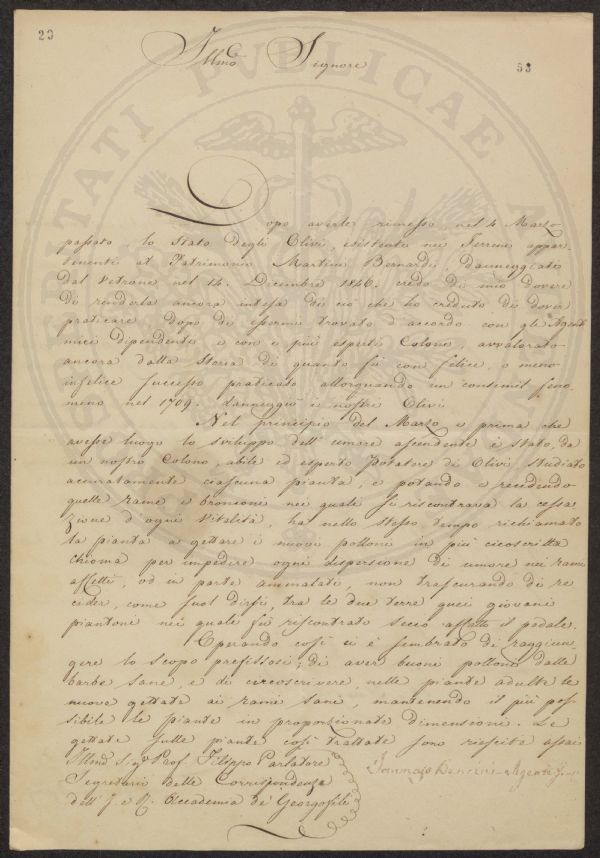 23
53
Illmo Signore
Dopo averle rimesso nel 4 Marzo
passato lo Stato degli Olivi, esistenti nei Terreni appar-
tenenti al Patrimonio Martini Bernardi, danneggiati
dal Vetrone nel 14. Decembre 1846. credo di mio dovere
di renderla ancora intesa di ciò che ho creduto di dover
praticare dopo di essermi trovato d'accordo con gli Agenti
miei dipendenti e con i più esperti Coloni, avvalorato
ancora dalla Storia di quanto fù con felice, o meno
infelice successo praticato allorquando un consimil feno
meno nel 1709. danneggiò i nostri Olivi.
Nel principio del Marzo e prima che
avesse luogo lo sviluppo dell'umore ascendente è stato, da
un nostro Colono, abile ed esperto Potatore di Olivi, studiato
accuratamente ciascuna pianta, e potando e recidendo
quelle rame e bronconi nei quali si riscontrava la cessa
zione d'ogni Vitalità, ha nello stesso tempo richiamato
la pianta a gettare i nuovi polloni in più circoscritta
chioma per impedire ogni dispersione di umore nei rami
affetti, od in parte ammalati, non trascurando di re
cider, come suol dirsi, tra le due terre quei giovani
piantoni nei quali fù riscontrato secco affatto il pedale.
Operando così ci è sembrato di raggiun-
gere lo scopo prefissosi; di aver buoni polloni dalle
barbe sane, e di circoscrivere nelle piante adulte le
nuove gettate ai rami sani, mantenendo il più pos
sibile le piante in proporzionate dimensioni. Le
gettate sulle piante così trattate sono riescite assai
Illmo S.r Prof. Filippo Parlatore
Segretario delle Corrispondenze
dell'I. e R. Accademia de' Georgofili
Tommaso Agente
PUBLICAE